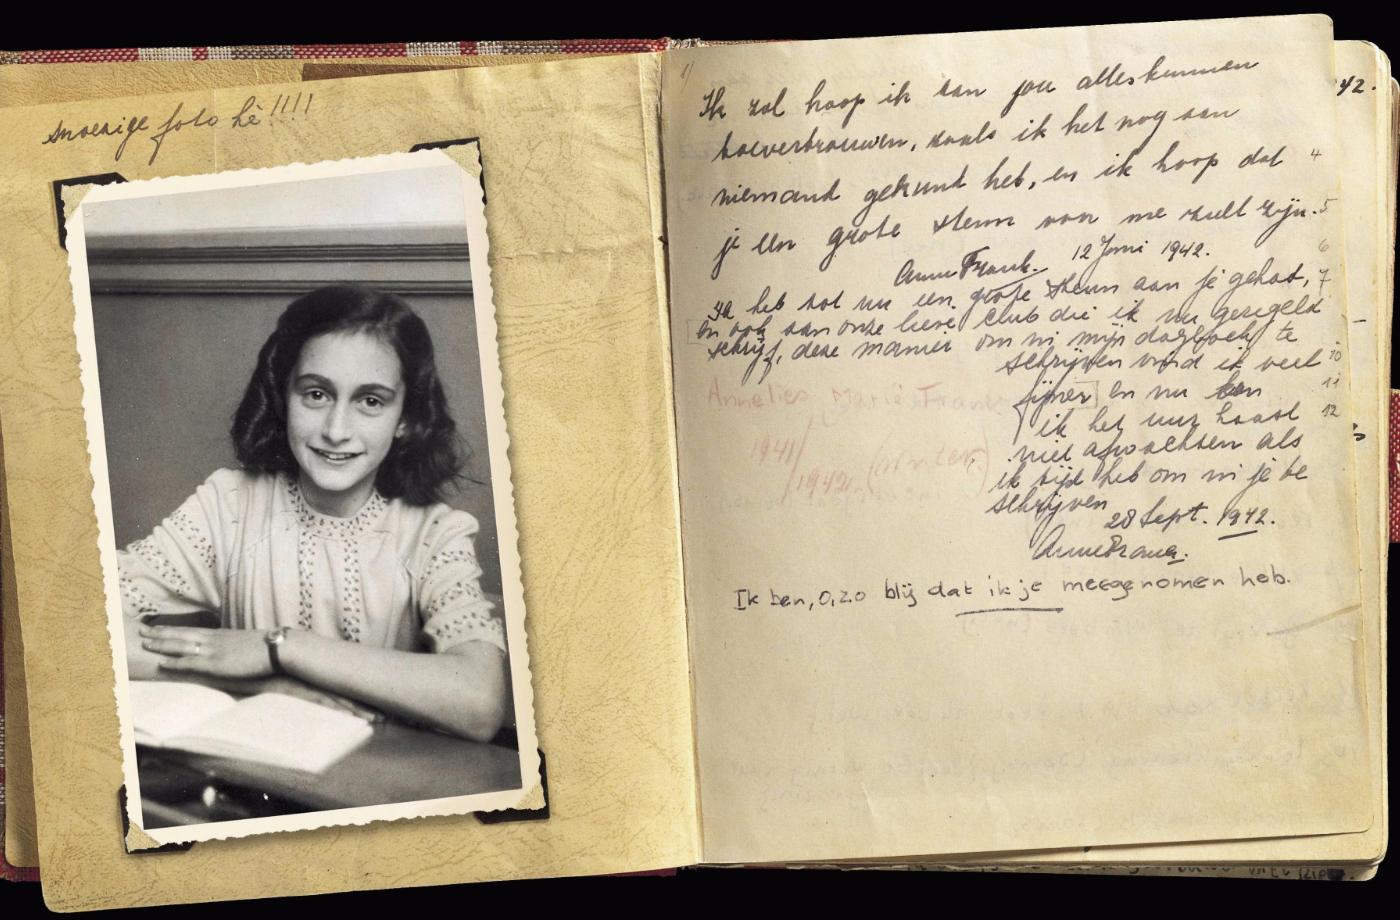 snoezige foto hè!!!!
Ik zal hoop ik aan jou alles kunnen
toevertrouwen, zoals ik het nog aan
niemand gekunnt heb, en ik hoop dat
je een grote steun van me zult zijn.
Anne Frank. 12 Juni 1942.
Ik heb tot nu een grote steun aan je gehad,
en ook aan onze lieve club die ik nu geregeld
schrijf, deze manier om in mijn dagboek te
schrijven vind ik veel
fijner en nu kan
ik het uur haast
niet afwachten als
ik tijd heb om in je te
schrijven
28 Sept. 1942.
Anne Frank.
Annelies Marie Frank
1941/
1942 (Winter)
Ik ben, O, zo blij dat ik je meegenomen heb.
42.
4
5
6
7
10
11
12